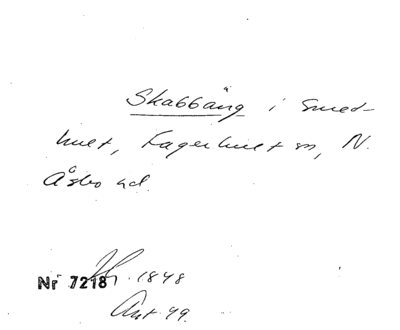 Skabbäng i Smed-
hult, Fagerhult sn, N.
Åsbo hd.
Nr 7218 1848
Ant. 99.